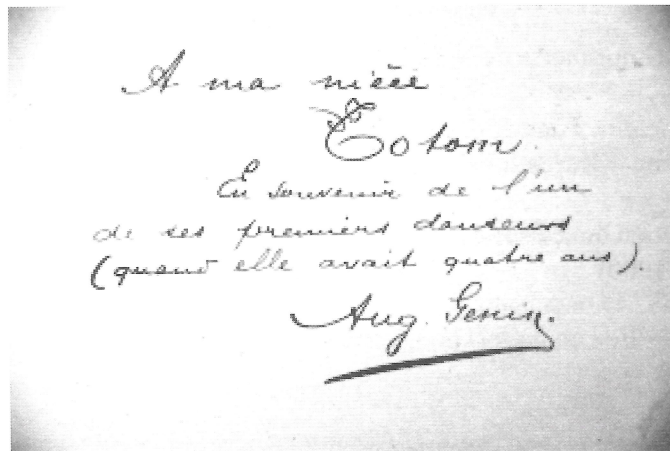 A ma nièce
Totom.
En souvenir de l'un
de ses premiers danseurs
(quand elle avait quatre ans).
Aug. Genin.